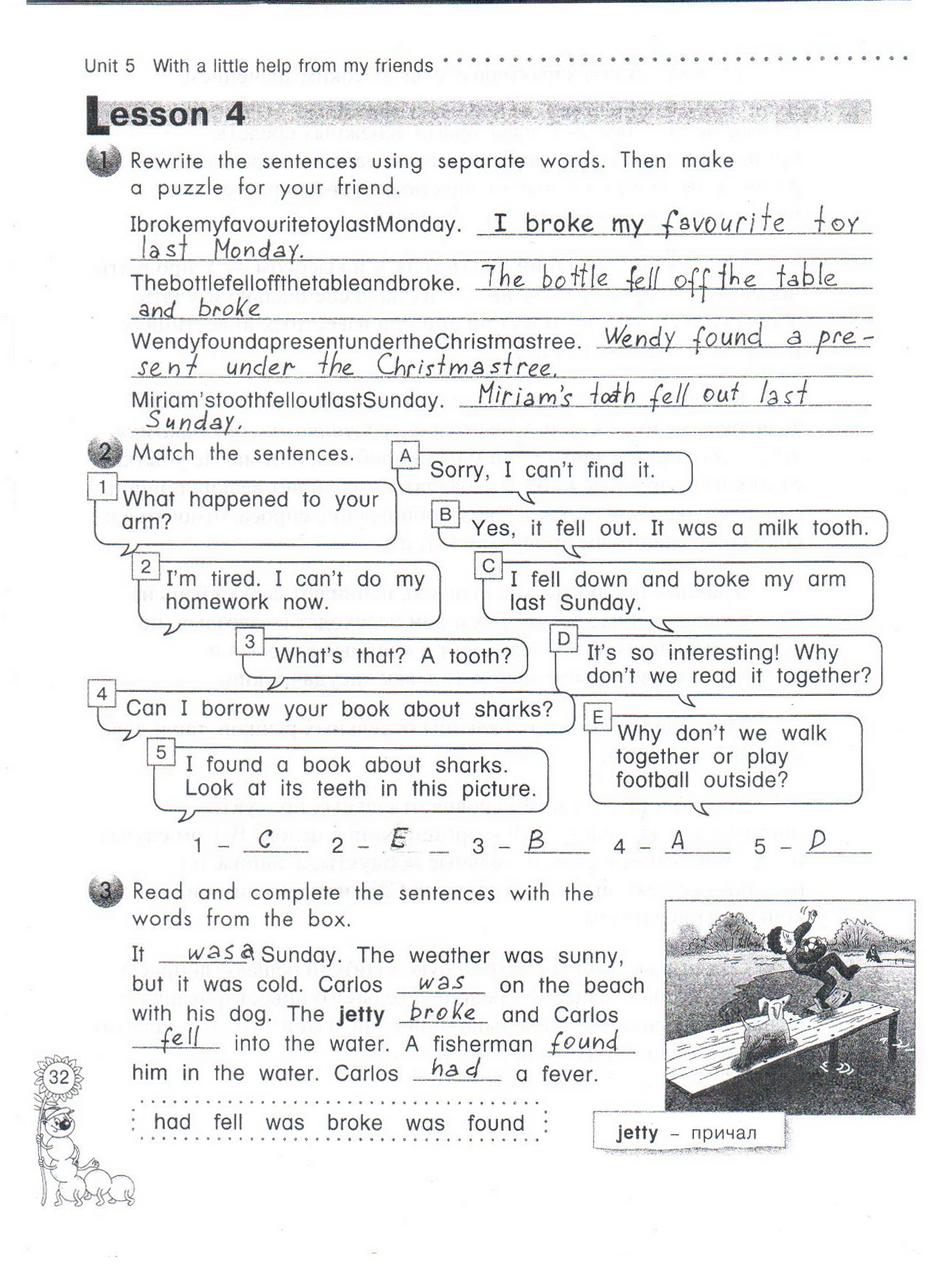 Unit 5 With a little help from my friends
Lesson 4
1 Rewrite the sentences using separate words. Then make
a puzzle for your friend.
IbrokemyfavouritetoylastMonday. I broke my favourite toy
last Monday.
Thebottlefelloffthetableandbroke. The bottle fell off the table
and broke
WendyfoundapresentundertheChristmastree. Wendy found a pre-
sent under the Christmastree.
Miriam'stoothfelloutlastSunday. Miriam's tooth fell out last
Sunday.
2 Match the sentences.
A Sorry, I can't find it.
1 What happened to your
arm?
B Yes, it fell out. It was a milk tooth.
2 I'm tired. I can't do my
homework now.
C I fell down and broke my arm
last Sunday.
3 What's that? A tooth?
D It's so interesting! Why
don't we read it together?
4 Can I borrow your book about sharks?
E Why don't we walk
together or play
football outside?
5 I found a book about sharks.
Look at its teeth in this picture.
1 – C 2 – E 3 – B 4 – A 5 – D
3 Read and complete the sentences with the
words from the box.
It was a Sunday. The weather was sunny,
but it was cold. Carlos was on the beach
with his dog. The jetty broke and Carlos
fell into the water. A fisherman found
him in the water. Carlos had a fever.
had fell was broke was found
jetty – причал
32